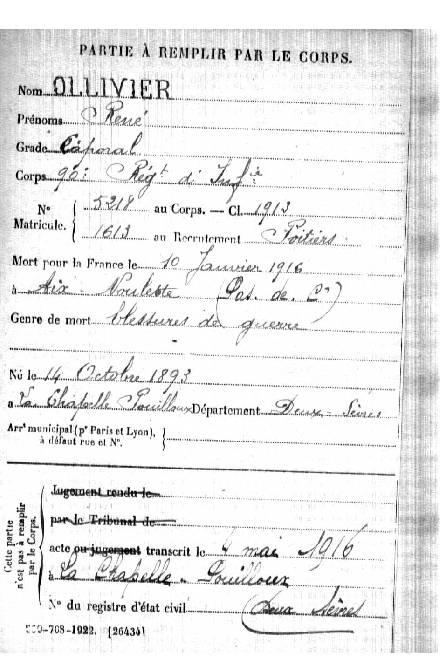 PARTIE À REMPLIR PAR LE CORPS.
Nom OLLIVIER
Prénoms René
Grade Caporal
Corps 90e Régt d'Infie
N° Matricule. { 5218 au Corps. — Cl. 1913
1613 au Recrutement Poitiers
Mort pour la France le 10 Janvier 1916
à Aix Noulette (Pas. de. Cs)
Genre de mort blessures de guerre
Né le 14 Octobre 1893
à La Chapelle Pouilloux Département Deux-Sèvres
Arrt municipal (pr Paris et Lyon), à défaut rue et N°. {
Cette partie n'est pas à remplir par le Corps.
Jugement rendu le
par le Tribunal de
acte ou jugement transcrit le 4 mai 1916
à La Chapelle-Pouilloux
N° du registre d'état civil (Deux Sèvres
-708-1922. [26434]